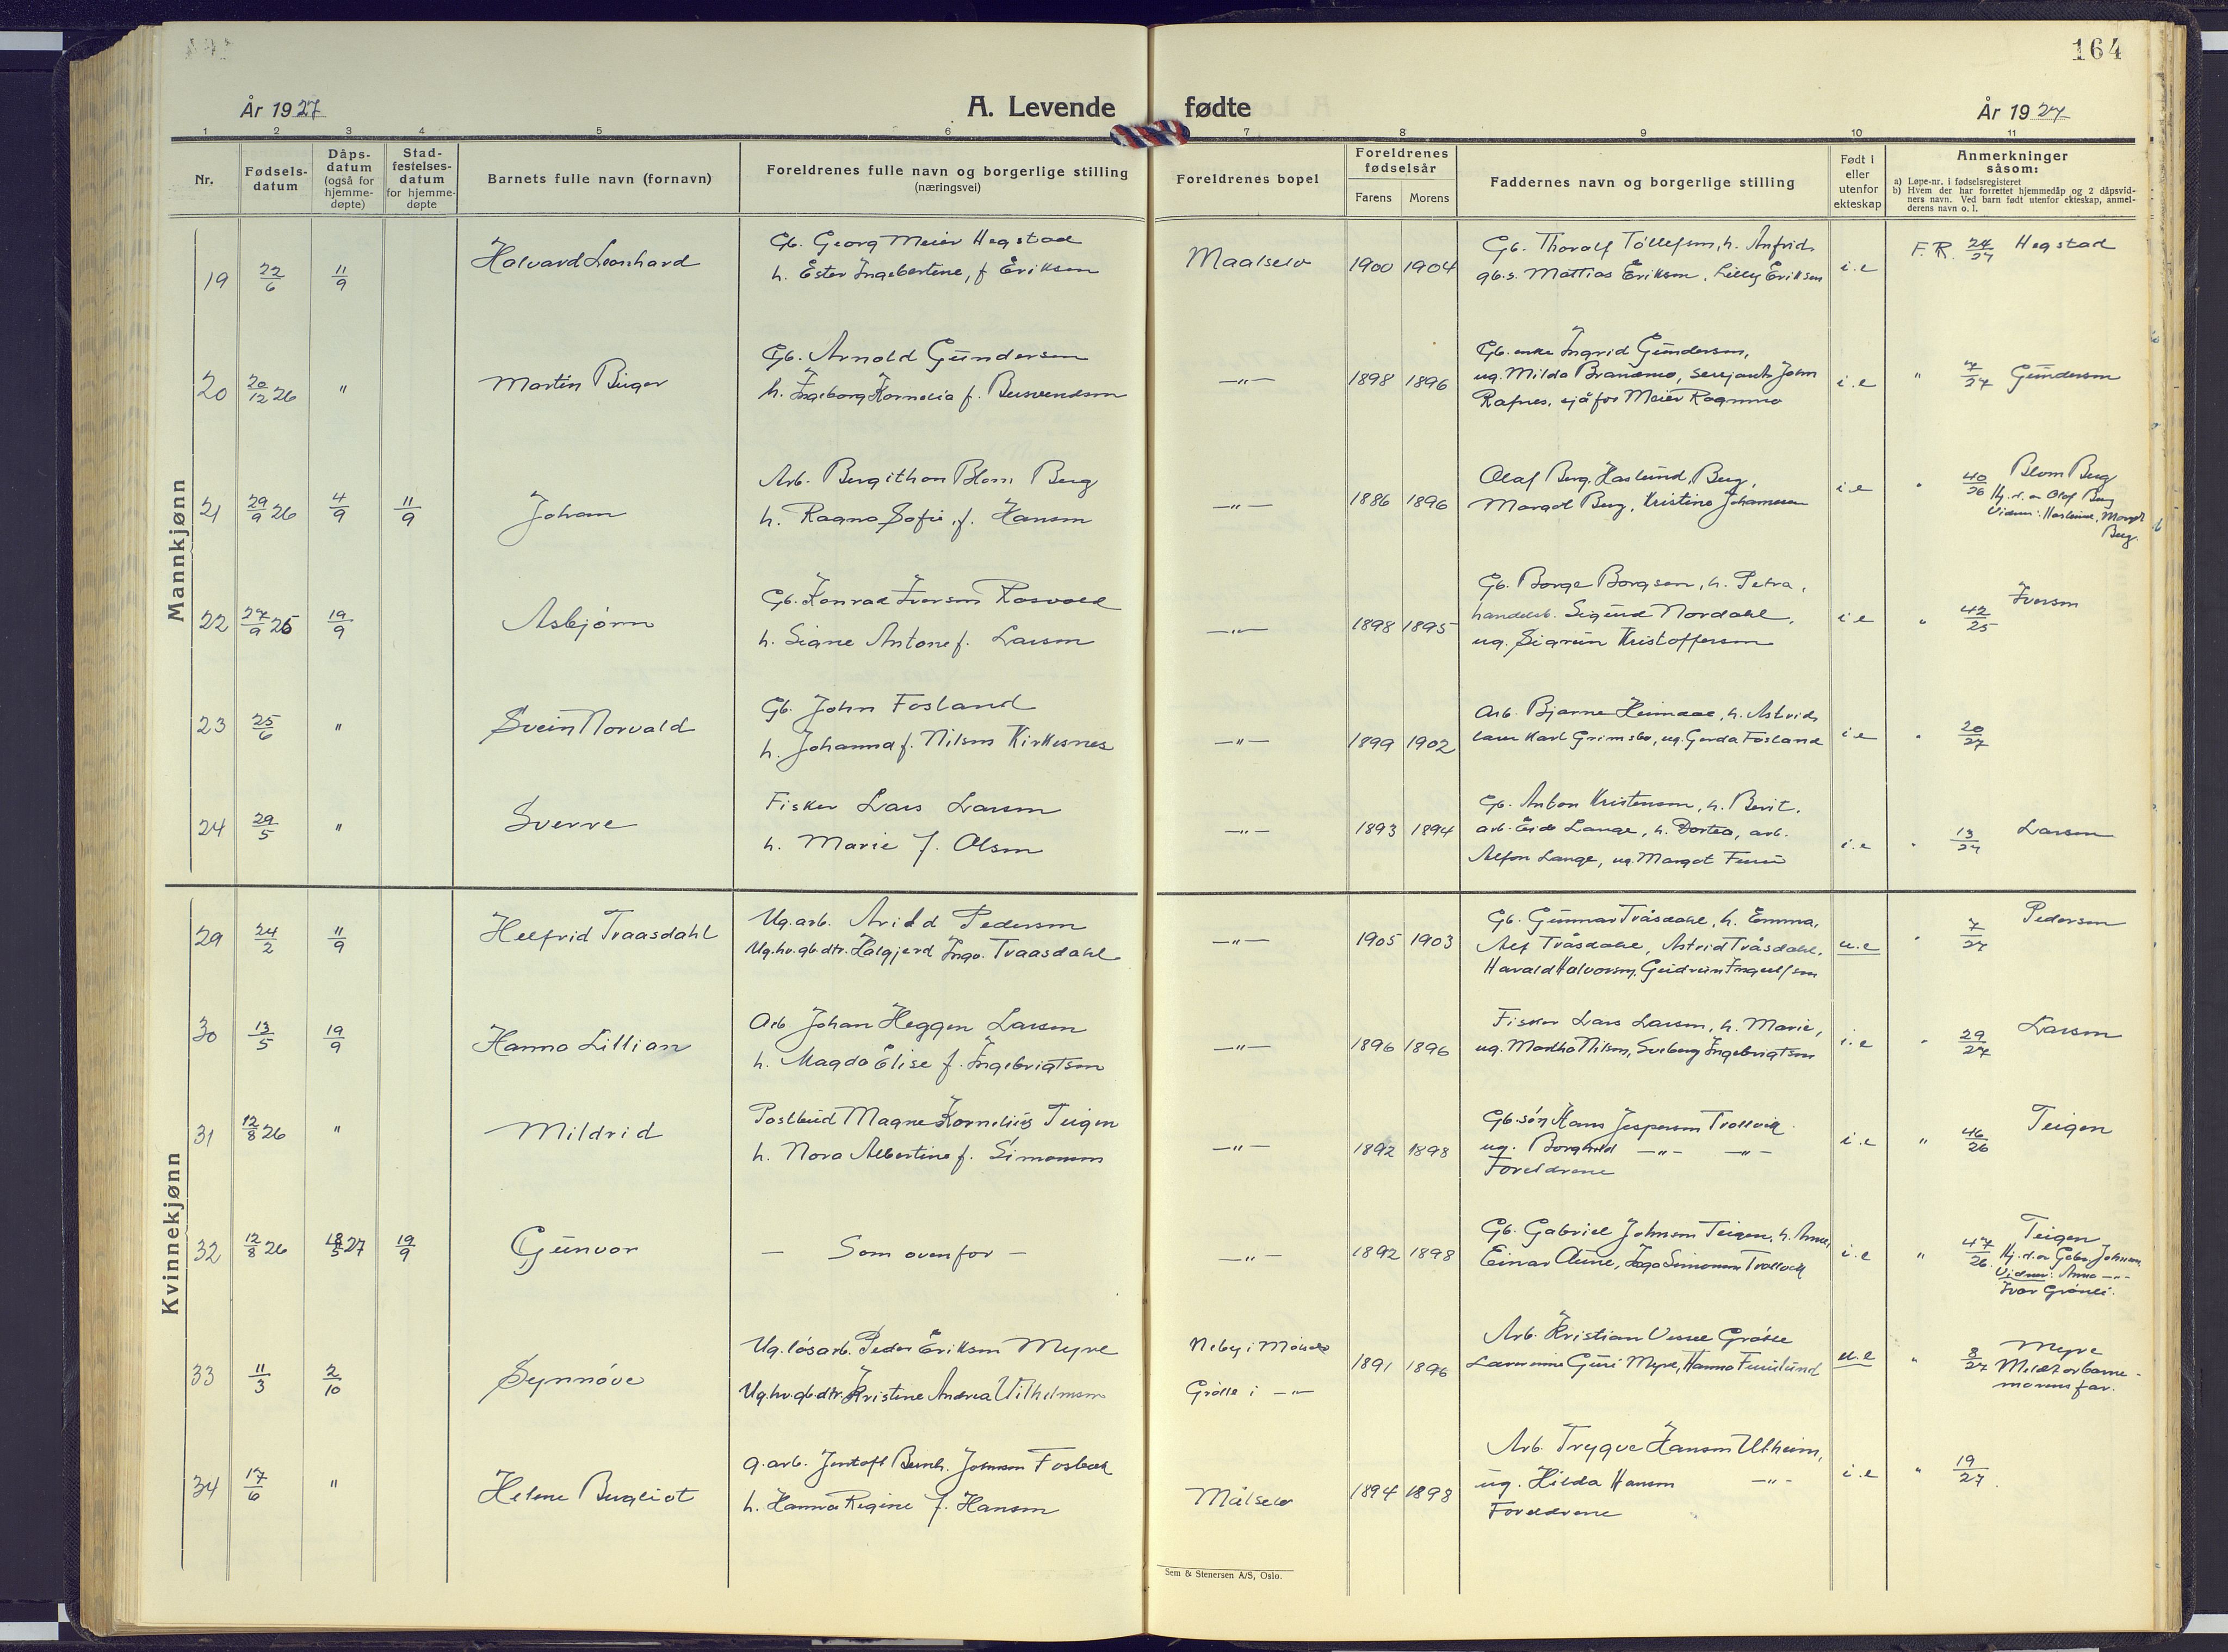 164
År 1927
A. Levende fødte
År 1927
1 2 3 4 5 6 7 8 9 10 11
Nr.
Fødsels-datum
Dåps-datum (også for hjemme-døpte)
Stad-festelses-datum for hjemme-døpte
Barnets fulle navn (fornavn)
Foreldrenes fulle navn og borgerlige stilling (næringsvei)
Foreldrenes bopel
Foreldrenes fødselsår
Farens Morens
Faddernes navn og borgerlige stilling
Født i eller utenfor ekteskap
Anmerkninger såsom:
a) Løpe-nr. i fødselsregisteret
b) Hvem der har forrettet hjemmedåp og 2 dåpsvid-
ners navn. Ved barn født utenfor ekteskap, anmel-
derens navn o. l.
Mannkjønn
19 22/6 11/9 Halvard Leonhard
Gb. Georg Meier Hegstad
h. Ester Ingebertine, f Eriksen
Maalselv 1900 1904
Gb. Thoralf Tollefsen, h. Anfrid,
gb.s. Mattias Eriksen, Lilly Eriksen
i.e F.R. 24/27 Hegstad
20 20/12 26 " Martin Birger
Gb. Arnold Gundersen
h. Ingeborg Kornelia f.
—"— 1898 1896
Gb. enke Ingrid Gundersen,
ug. Milda Brandmo, serjant John
Rafnes, sjåfør Meier Rognmo
i.e " 7/27 Gundersen
21 29/9 26 4/9 11/9 Johan
Arb. Bergithon Blom Berg
h. Ragna Sofie, f. Hansen
—"— 1886 1896
Olaf Berg, Haslund Berg,
Margot Berg, Kristine Johannesen
i.e " 40/26 Blom Berg
Hj.d. av Olaf Berg
Vidner: Haslund, Margot
Berg.
22 27/9 25 19/9 Asbjørn
Gb. Konrad Iversen Rosvold
h. Signe Antone f. Larsen
—"— 1898 1895
Gb. Borge Borgsen, h. Petra,
handelsb. Sigurd Nordahl,
ug. Sigrun Kristoffersen
i.e " 42/25 Iversen
23 25/6 " Svein Norvald
Gb. John Fosland
h. Johanna f. Nilsen Kirkesnes
—"— 1899 1902
Arb. Bjarne Heimdal, h. Astrid,
Karl Grimsbo, ug. Gerda Fosland
i.e " 20/27
24 29/5 " Sverre
Fisker Lars Larsen
h. Marie f. Olsen
—"— 1893 1894
Gb. Anton Kristensen, h. Berit.
arb. Lange, h. Dortea, arb.
Alfon Lange, ug. Margot
i.e " 13/27 Larsen
Kvinnekjønn
29 24/2 11/9 Helfrid Traasdahl
Ug. arb. Arild Pedersen
Ug.hv. gb.dtr. Halgjerd Ingv. Traasdahl
—"— 1905 1903
Gb. Gunnar Tråsdahl, h. Emma,
Alf Tråsdahl, Astrid Tråsdahl,
Harald Halvorsen, Gudrun Ingulfsen
u.e " 7/27 Pedersen
30 13/5 19/9 Hanna Lillian
Arb Johan Heggen Larsen
h. Magda Elise f. Ingebrigtsen
—"— 1896 1896
Fisker Lars Larsen, h. Marie,
ug. Martha Nilsen, Solberg Ingebrigtsen
i.e " 29/27 Larsen
31 12/8 26 " Mildrid
Postbud Magne Kornelius Teigen
h. Nora Albertine f. Simonsen
—"— 1892 1898
Gb.søn Hans Jespersen Trollvik
ug. Borghild —"— —"—
Foreldrene
i.e " 46/26 Teigen
32 12/8 26 18/5 27 19/9 Gunvor
— Som ovenfor —
—"— 1892 1898
Gb. Gabriel Johnsen Teigen, h. Anna,
Einar Aune, Inga Simonsen Trollvik
i.e " 47/26 Teigen
Hj.d. av Gabr. Johnsen
Vidner: Anna —"—
Ivar Grønli.
33 11/3 2/10 Synnøve
Ug. løsarb. Peder Eriksen Myre
Ug.hv. gb.dtr. Kristine Andrea Wilhelmsen
Neby i Målselv
i —"— 1891 1896
Arb. Kristian
Guri Myre, Hanna Furulund
u.e " 8/27 Myre
Meldt av barne-
morens far.
34 17/6 " Helene Bergliot
G.arb. Jentoft Bernh. Johnsen Fosbak
h. Hanna Regine f. Hansen
Målselv 1894 1898
Arb. Trygve Hansen Utheim,
ug. Hilda Hansen —"—
Foreldrene
i.e " 19/27
Sem & Stenersen A/S, Oslo.